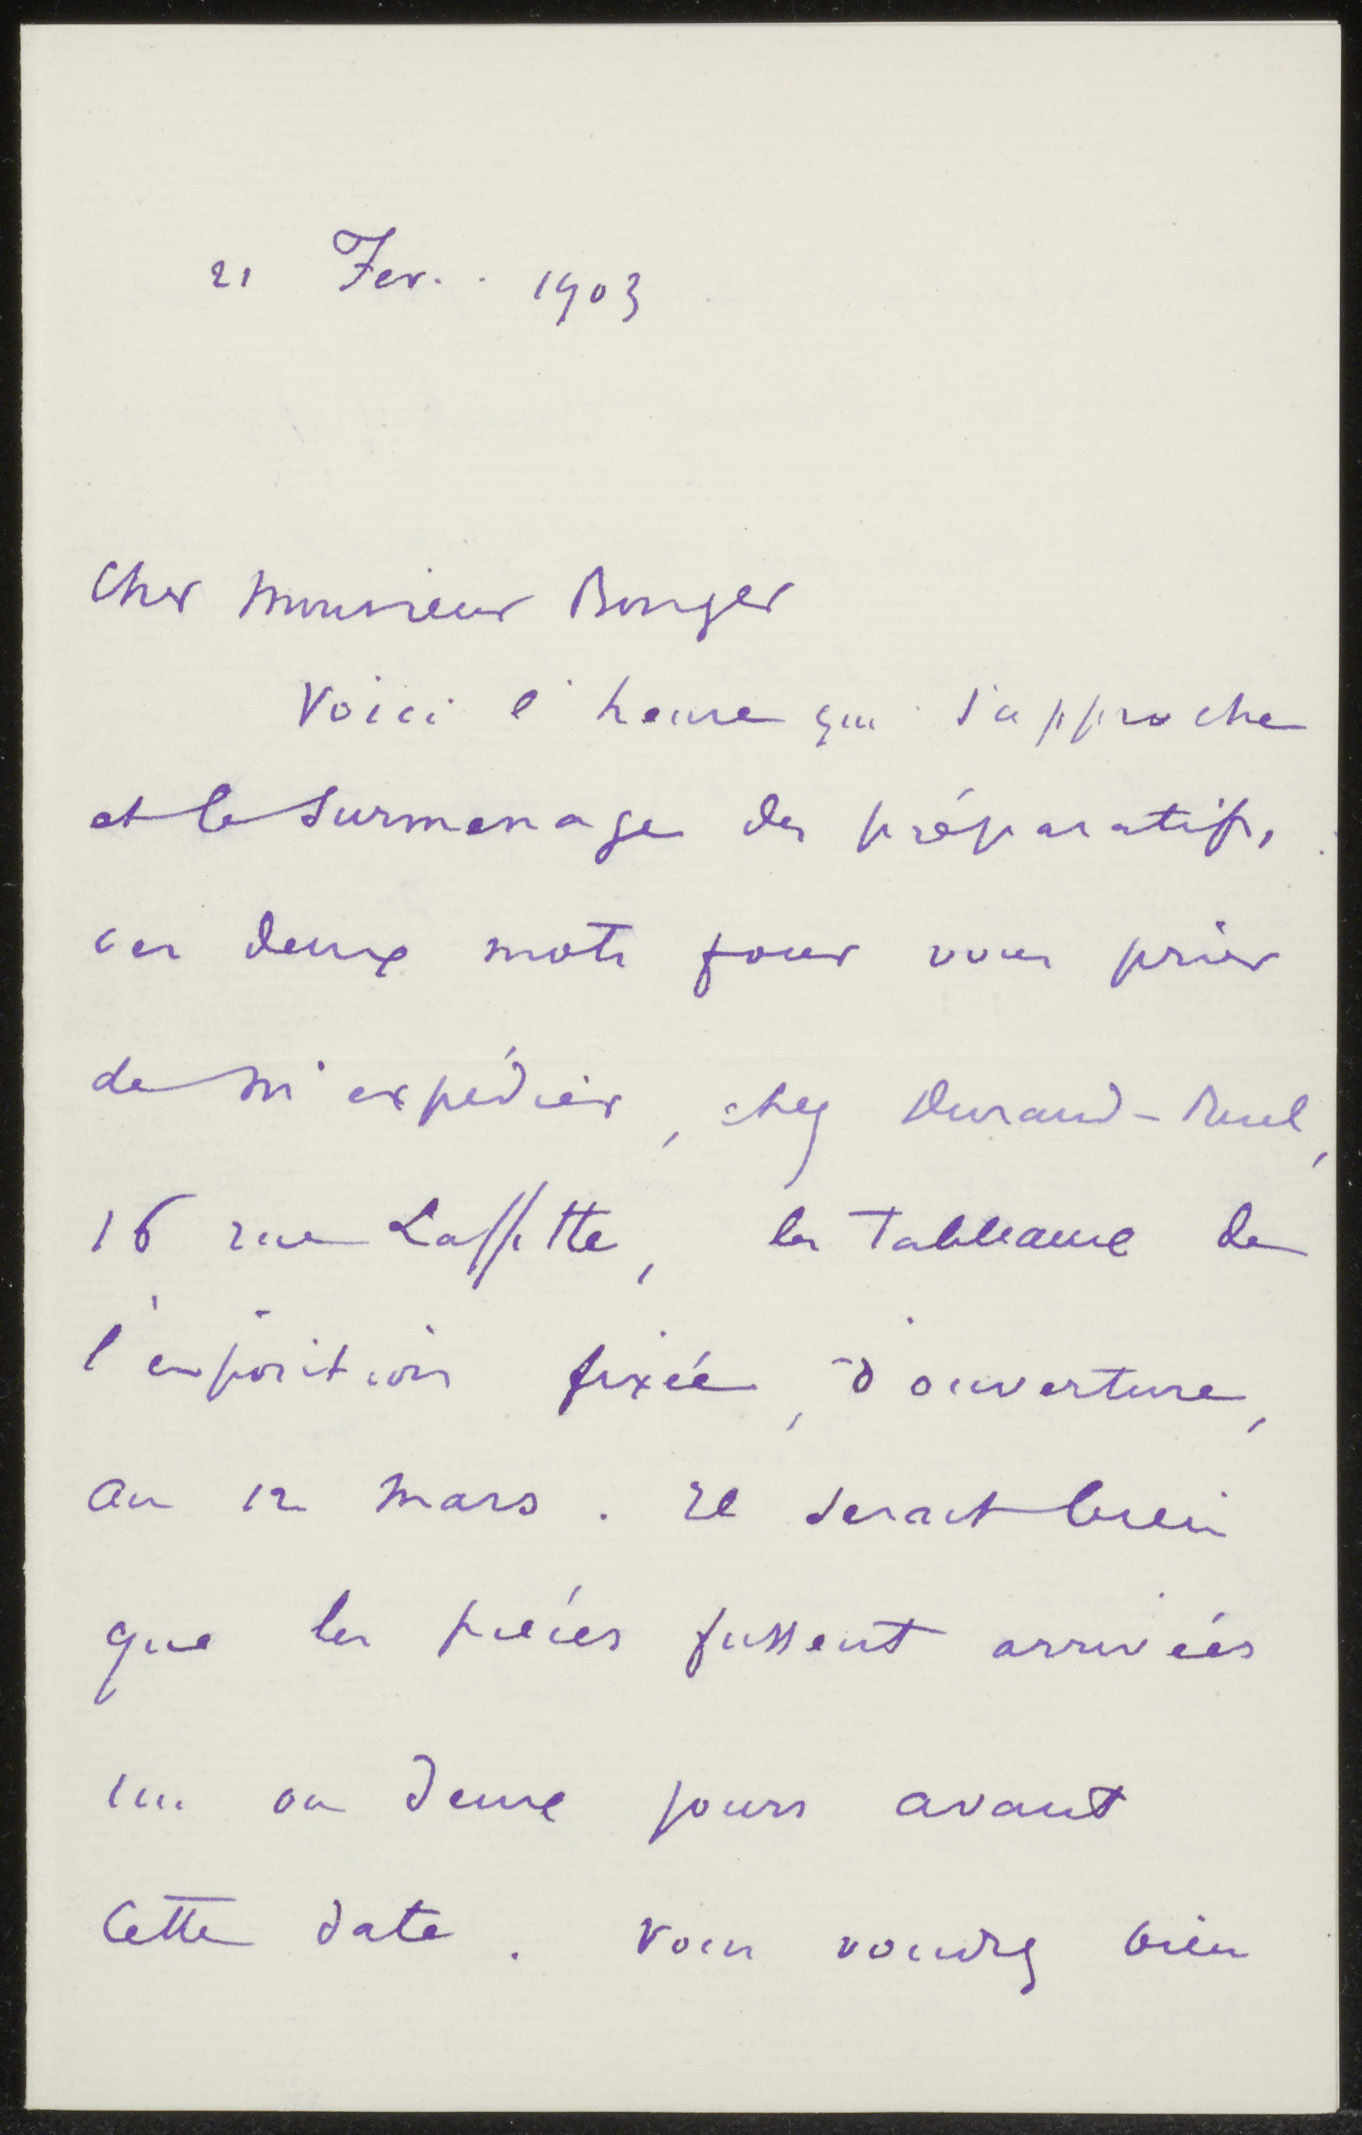 21 Fev. 1903
Cher Monsieur Bonger
Voici l'heure qui s'approche
et le surmenage des préparatifs,
ces deux mots pour vous prier
de m'expédier, chez Durand-Ruel,
16 rue Laffitte, les tableaux de
l'exposition fixée, d'ouverture,
au 12 mars. Il serait bien
que les pièces fussent arrivées
un ou deux jours avant
cette date. Vous voudrez bien